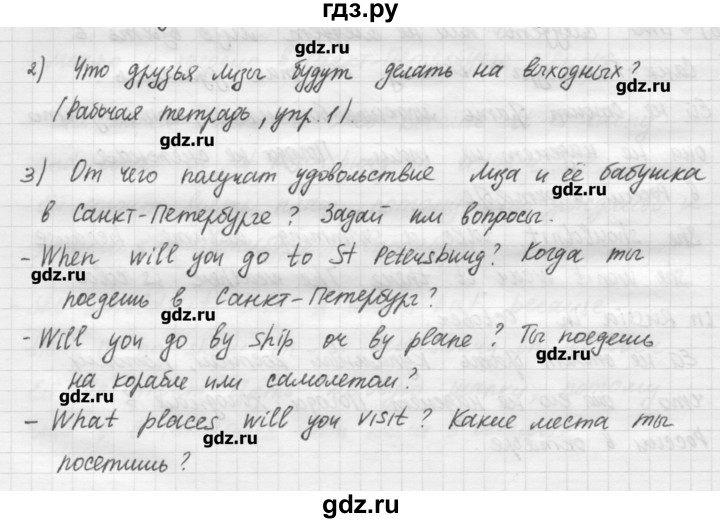 гдз.ру
gdz.ru
2) Что друзья Лизы будут делать на выходных?
gdz.ru
(Рабочая тетрадь, упр. 1).
gdz.ru
3) От чего получат удовольствие Лиза и её бабушка
gdz.ru
в Санкт-Петербурге? Задай им вопросы.
- When will you go to St Petersburg? Когда ты
gdz.ru
поедешь в Санкт-Петербург?
gdz.ru
- Will you go by ship or by plane? Ты поедешь
gdz.ru
на корабле или самолетом?
gdz.ru
- What places will you visit? Какие места ты
gdz.ru
посетишь?
gdz.ru